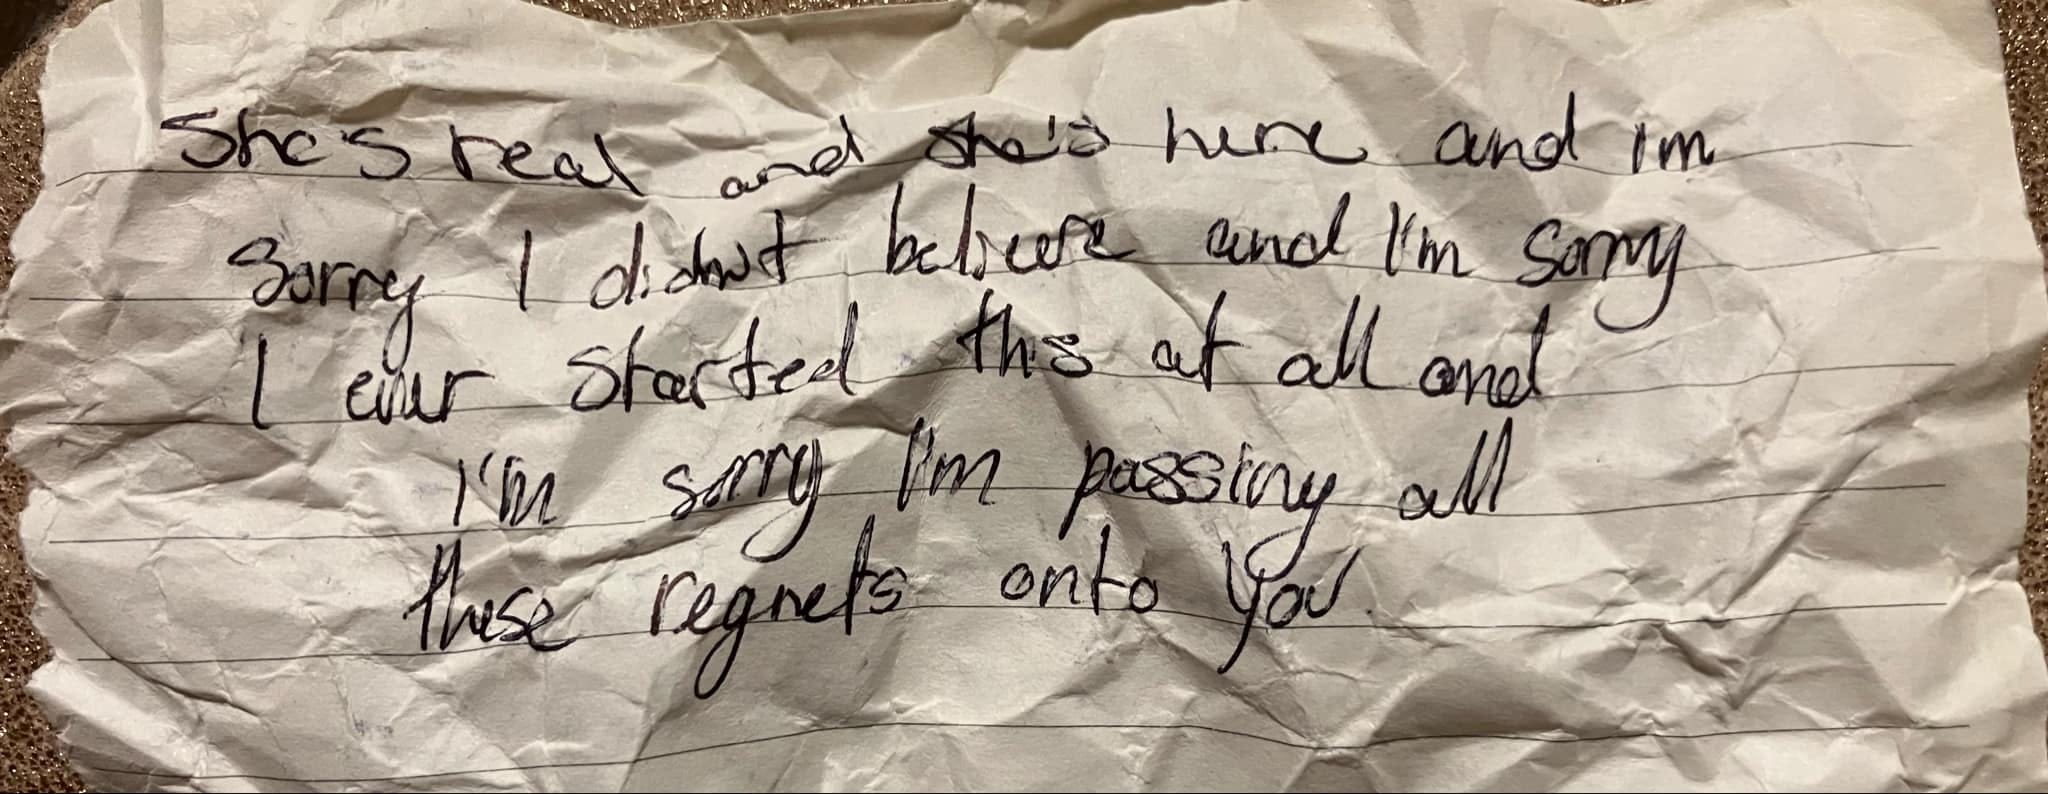 She's real and she's here and im
Sorry I didn't believe and I'm sorry
I ever started this at all and
I'm sorry I'm passing all
these regrets onto you